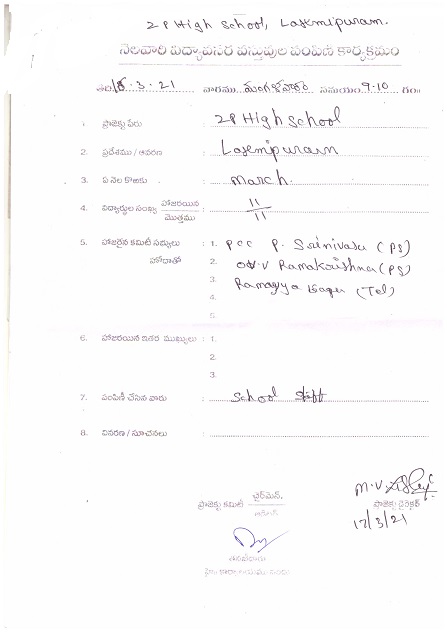 ZP High School, Laxmipuram.
నెలవారి విద్యావసర వస్తువుల పంపిణీ కార్యక్రమం
తేది 16.3.21 వారము మంగళవారం సమయం 9-10 గం॥
1. ప్రాజెక్టు పేరు : ZP High School
2. ప్రదేశము / ఆవరణ : Laxmipuram
3. ఏ నెల కొఱకు : March.
4. విద్యార్థుల సంఖ్య హాజరయిన / మొత్తము : 11 / 11
5. హాజరైన కమిటీ సభ్యులు : 1. PCC P. Srinivasu (PS)
హోదాతో 2. V Ramakrishna (PS)
3. Ramayya (Tel)
4.
5.
6. హాజరయిన ఇతర ముఖ్యులు : 1.
2.
3.
7. పంపిణీ చేసిన వారు : School Staff
8. వివరణ / సూచనలు :
ప్రాజెక్టు కమిటీ ఛైర్మెన్.
M.V.
ప్రాజెక్టు డైరెక్టర్
17/3/21